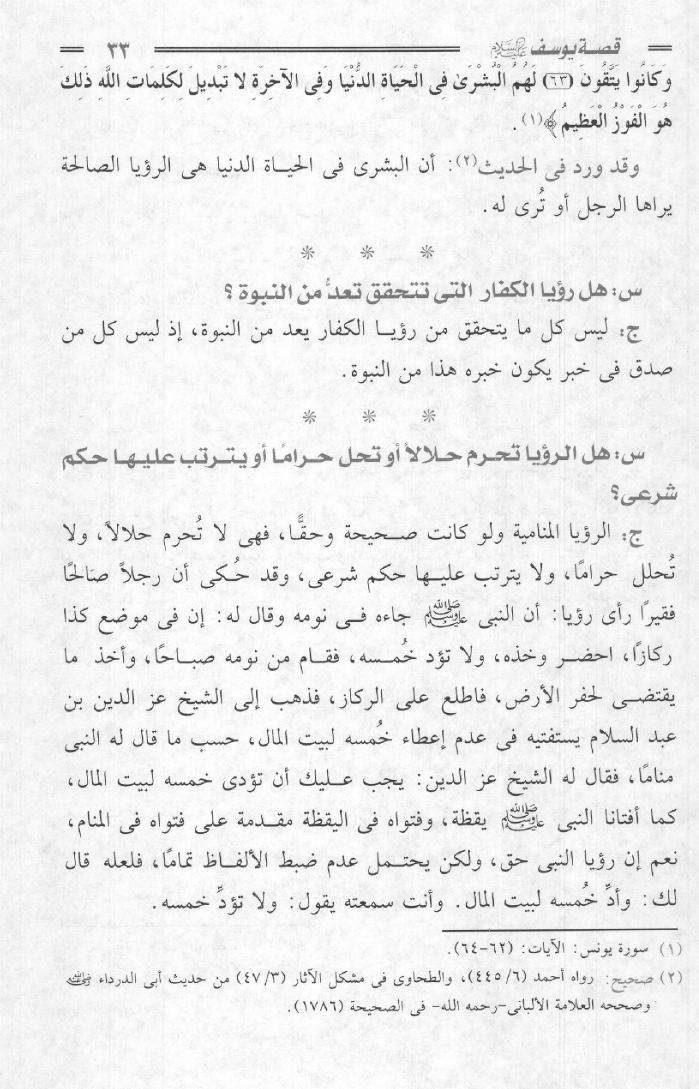 قصة يوسف عليه السلام ٣٣
وَكَانُوا يَتَّقُونَ (٦٣) لَهُمُ الْبُشْرَىٰ فِى الْحَيَاةِ الدُّنْيَا وَفِى الآخِرَةِ لا تَبْدِيلَ لِكَلِمَاتِ اللَّهِ ذَلِكَ
هُوَ الْفَوْزُ الْعَظِيمُ﴾(١).
وقد ورد فى الحديث(٢): أن البشرى فى الحياة الدنيا هى الرؤيا الصالحة
يراها الرجل أو تُرى له.
* * *
س: هل رؤيا الكفار التى تتحقق تعدُّ من النبوة ؟
ج: ليس كل ما يتحقق من رؤيا الكفار يعد من النبوة، إذ ليس كل من
صدق فى خبر يكون خبره هذا من النبوة.
* * *
س: هل الرؤيا تحرم حلالاً أو تحل حرامًا أو يترتب عليها حكم
شرعى؟
ج: الرؤيا المنامية ولو كانت صحيحة وحقًّا، فهى لا تُحرم حلالاً، ولا
تُحلل حرامًا، ولا يترتب عليها حكم شرعى، وقد حُكى أن رجلاً صالحًا
فقيرًا رأى رؤيا: أن النبى ﷺ جاءه فى نومه وقال له: إن فى موضع كذا
ركازًا، احضر وخذه، ولا تؤد خُمسه، فقام من نومه صباحًا، وأخذ ما
يقتضى لحفر الأرض، فاطلع على الركاز، فذهب إلى الشيخ عز الدين بن
عبد السلام يستفتيه فى عدم إعطاء خُمسه لبيت المال، حسب ما قال له النبى
منامًا، فقال له الشيخ عز الدين: يجب عليك أن تؤدى خمسه لبيت المال،
كما أفتانا النبى ﷺ يقظة، وفتواه فى اليقظة مقدمة على فتواه فى المنام،
نعم إن رؤيا النبى حق، ولكن يحتمل عدم ضبط الألفاظ تمامًا، فلعله قال
لك: وأدِّ خُمسه لبيت المال. وأنت سمعته يقول: ولا تؤدِّ خمسه.
(١) سورة يونس: الآيات: (٦٢-٦٤).
(٢) صحيح: رواه أحمد (٤٤٥/٦)، والطحاوى فى مشكل الآثار (٤٧/٣) من حديث أبى الدرداء رضي الله عنه
وصححه العلامة الألبانى-رحمه الله- فى الصحيحة (١٧٨٦).